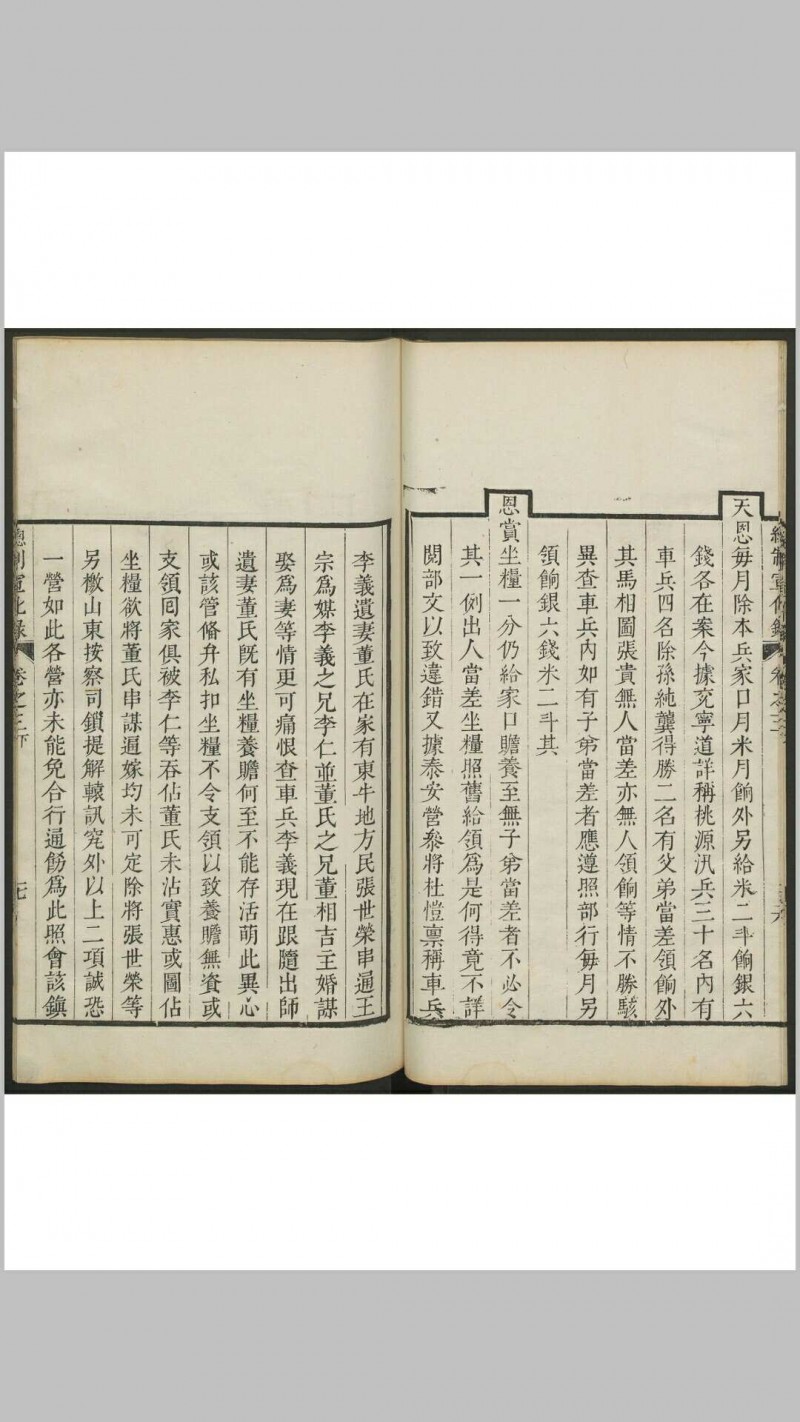 天恩每月除本兵家口月米月餉外另給米二斗餉銀六
錢各在案今據兗寧道詳稱桃源汛兵三十名內有
車兵四名除孫純龔得勝二名有父弟當差領餉外
其馬相圖張貴無人當差亦無人領餉等情不勝駭
異查車兵內如有子弟當差者應遵照部行每月另
領餉銀六錢米二斗其
恩賞坐糧一分仍給家口贍養至無子弟當差者不必令
其一例出人當差坐糧照舊給領為是何得竟不詳
閱部文以致違錯又據泰安營參將杜愷禀稱車兵
李義遺妻董氏在家有東牛地方民張世榮串通王
宗為媒李義之兄李仁並董氏之兄董相吉主婚謀
娶為妻等情更可痛恨查車兵李義現在跟隨出師
遺妻董氏既有坐糧養贍何至不能存活萌此異心
或該管俻弁私扣坐糧不令支領以致養贍無資或
支領回家俱被李仁等吞佔董氏未沾實惠或圖佔
坐糧欲將董氏串謀逼嫁均未可定除將張世榮等
另檄山東按察司鎖提解轅訊究外以上二項誠恐
一營如此各營亦未能免合行通飭為此照會該鎮
卷之三下